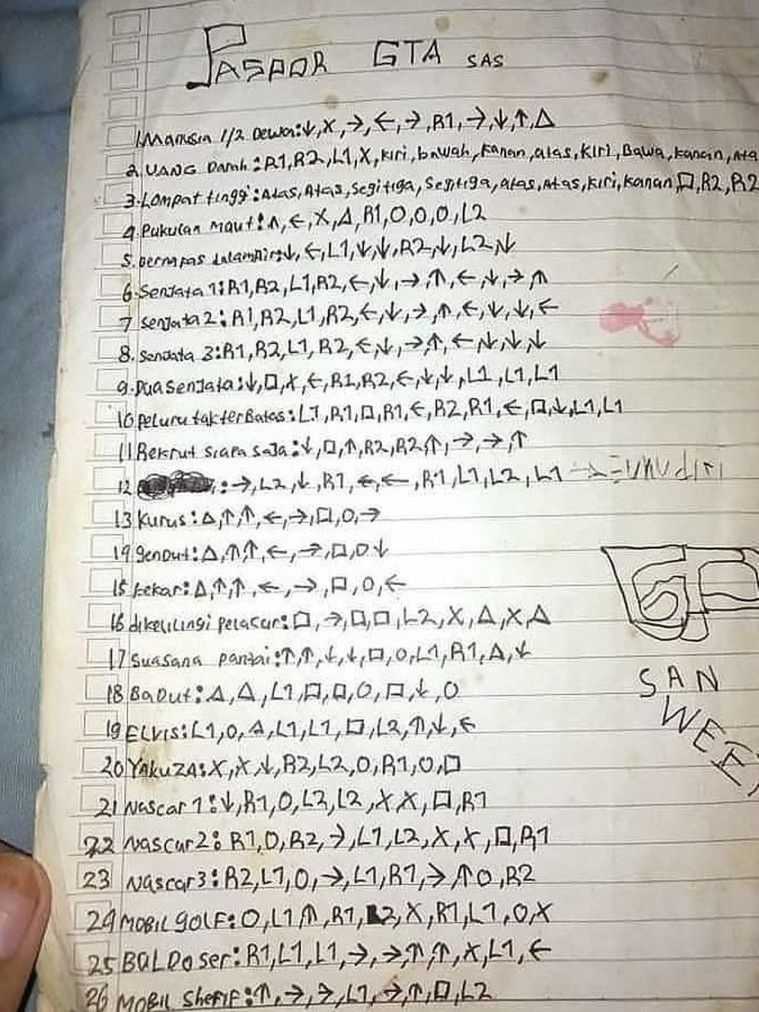 PASPOR GTA SAS
1 Manusia 1/2 Dewa:↓,X,→,←,→,R1,→,↓,↑,△
2. UANG Darah:R1,R2,L1,X,Kiri,bawah,Kanan,atas,Kiri,Bawa,Kanan,Ata
3. Lompat tinggi:Atas,Atas,Segitiga,Segitiga,atas,Atas,Kiri,Kanan,□,R2,R2
4. Pukulan Maut:↑,←,X,△,R1,O,O,O,L2
5. Bernapas dalam air:↓,←,L1,↓,↓,R2,↓,L2,↓
6. Senjata 1:R1,R2,L1,R2,←,↓,→,↑,←,↓,→,↑
7 Senjata 2:R1,R2,L1,R2,←,↓,→,↑,←,↓,↓,←
8. Senjata 3:R1,R2,L1,R2,←,↓,→,↑,←,↓,↓,↓
9. Dua Senjata:↓,□,X,←,R1,R2,←,↓,↓,L1,L1,L1
10 Peluru takterBatas:L1,R1,□,R1,←,R2,R1,←,□,↓,L1,L1
11 Rekrut siapa saja:↓,□,↑,R2,R2,↑,→,→,↑
12 :→,L2,↓,R1,←,←,R1,L1,L2,L1
13 Kurus:△,↑,↑,←,→,□,O,→
14 gendut:△,↑,↑,←,→,□,O,↓
15 kekar:△,↑,↑,←,→,□,O,←
16 dikelilingi pelacur:□,→,□,□,L2,X,△,X,△
17 Suasana pantai:↑,↑,↓,↓,□,O,L1,R1,△,↓
18 Badut:△,△,L1,□,□,O,□,↓,O
19 ELVIS:L1,O,△,L1,L1,□,L2,↑,↓,←
20 YAKUZA:X,X,↓,R2,L2,O,R1,O,□
21 Nascar 1:↓,R1,O,L2,L2,X,X,□,R1
22 Nascar2:R1,O,R2,→,L1,L2,X,X,□,R1
23 Nascar3:R2,L1,O,→,L1,R1,→,↑,O,R2
24 MOBIL golf:O,L1,↑,R1,L2,X,R1,L1,O,X
25 BULDoser:R1,L1,L1,→,→,↑,↑,X,L1,←
26 MOBIL Sherif:↑,→,→,L1,→,↑,□,L2
SAN